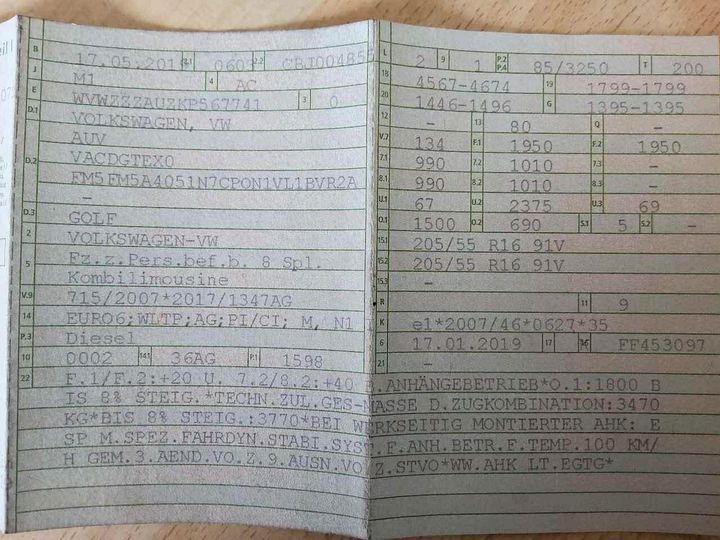 B 17.05.2019 2.1 0603 2.2 CBJ004855
J M1 4 AC
E WVWZZZAUZKP567741 3 0
D.1 VOLKSWAGEN, VW
AUV
D.2 VACDGTEX0
FM5FM5A4051N7CPON1VL1BVR2A
-
D.3 GOLF
2 VOLKSWAGEN-VW
5 Fz.z.Pers.bef.b. 8 Spl.
Kombilimousine
V.9 715/2007*2017/1347AG
14 EURO6;WLTP;AG;PI/CI; M, N1 I
P.3 Diesel
10 0002 14.1 36AG P.1 1598
L 2 9 1 P.2 P.4 85/3250 T 200
18 4567-4674 19 1799-1799
20 1446-1496 G 1395-1395
12 - 13 80 Q -
V.7 134 F.1 1950 F.2 1950
7.1 990 7.2 1010 7.3 -
8.1 990 8.2 1010 8.3 -
U.1 67 U.2 2375 U.3 69
O.1 1500 O.2 690 S.1 5 S.2 -
15.1 205/55 R16 91V
15.2 205/55 R16 91V
15.3 -
R 11 9
K e1*2007/46*0627*35
6 17.01.2019 17 16 FF453097
21 -
22 F.1/F.2:+20 U. 7.2/8.2:+40 B.ANHÄNGEBETRIEB*O.1:1800 B
IS 8% STEIG.*TECHN.ZUL.GES-MASSE D.ZUGKOMBINATION:3470
KG*BIS 8% STEIG.:3770*BEI WERKSEITIG MONTIERTER AHK: E
SP M.SPEZ.FAHRDYN.STABI.SYST.F.ANH.BETR.F.TEMP.100 KM/
H GEM.3.AEND.VO.Z.9.AUSN.VO.Z.STVO*WW.AHK LT.EGTG*